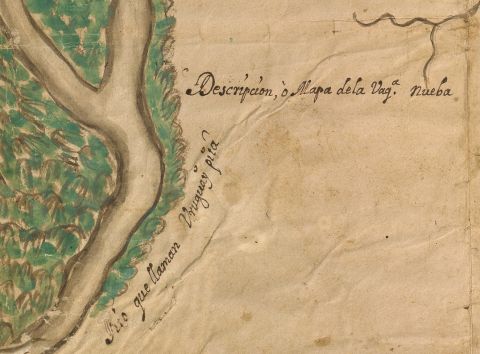 Descripcion, ò Mapa dela Vaq.ª Nueba
Rio que llaman Uruguay pità